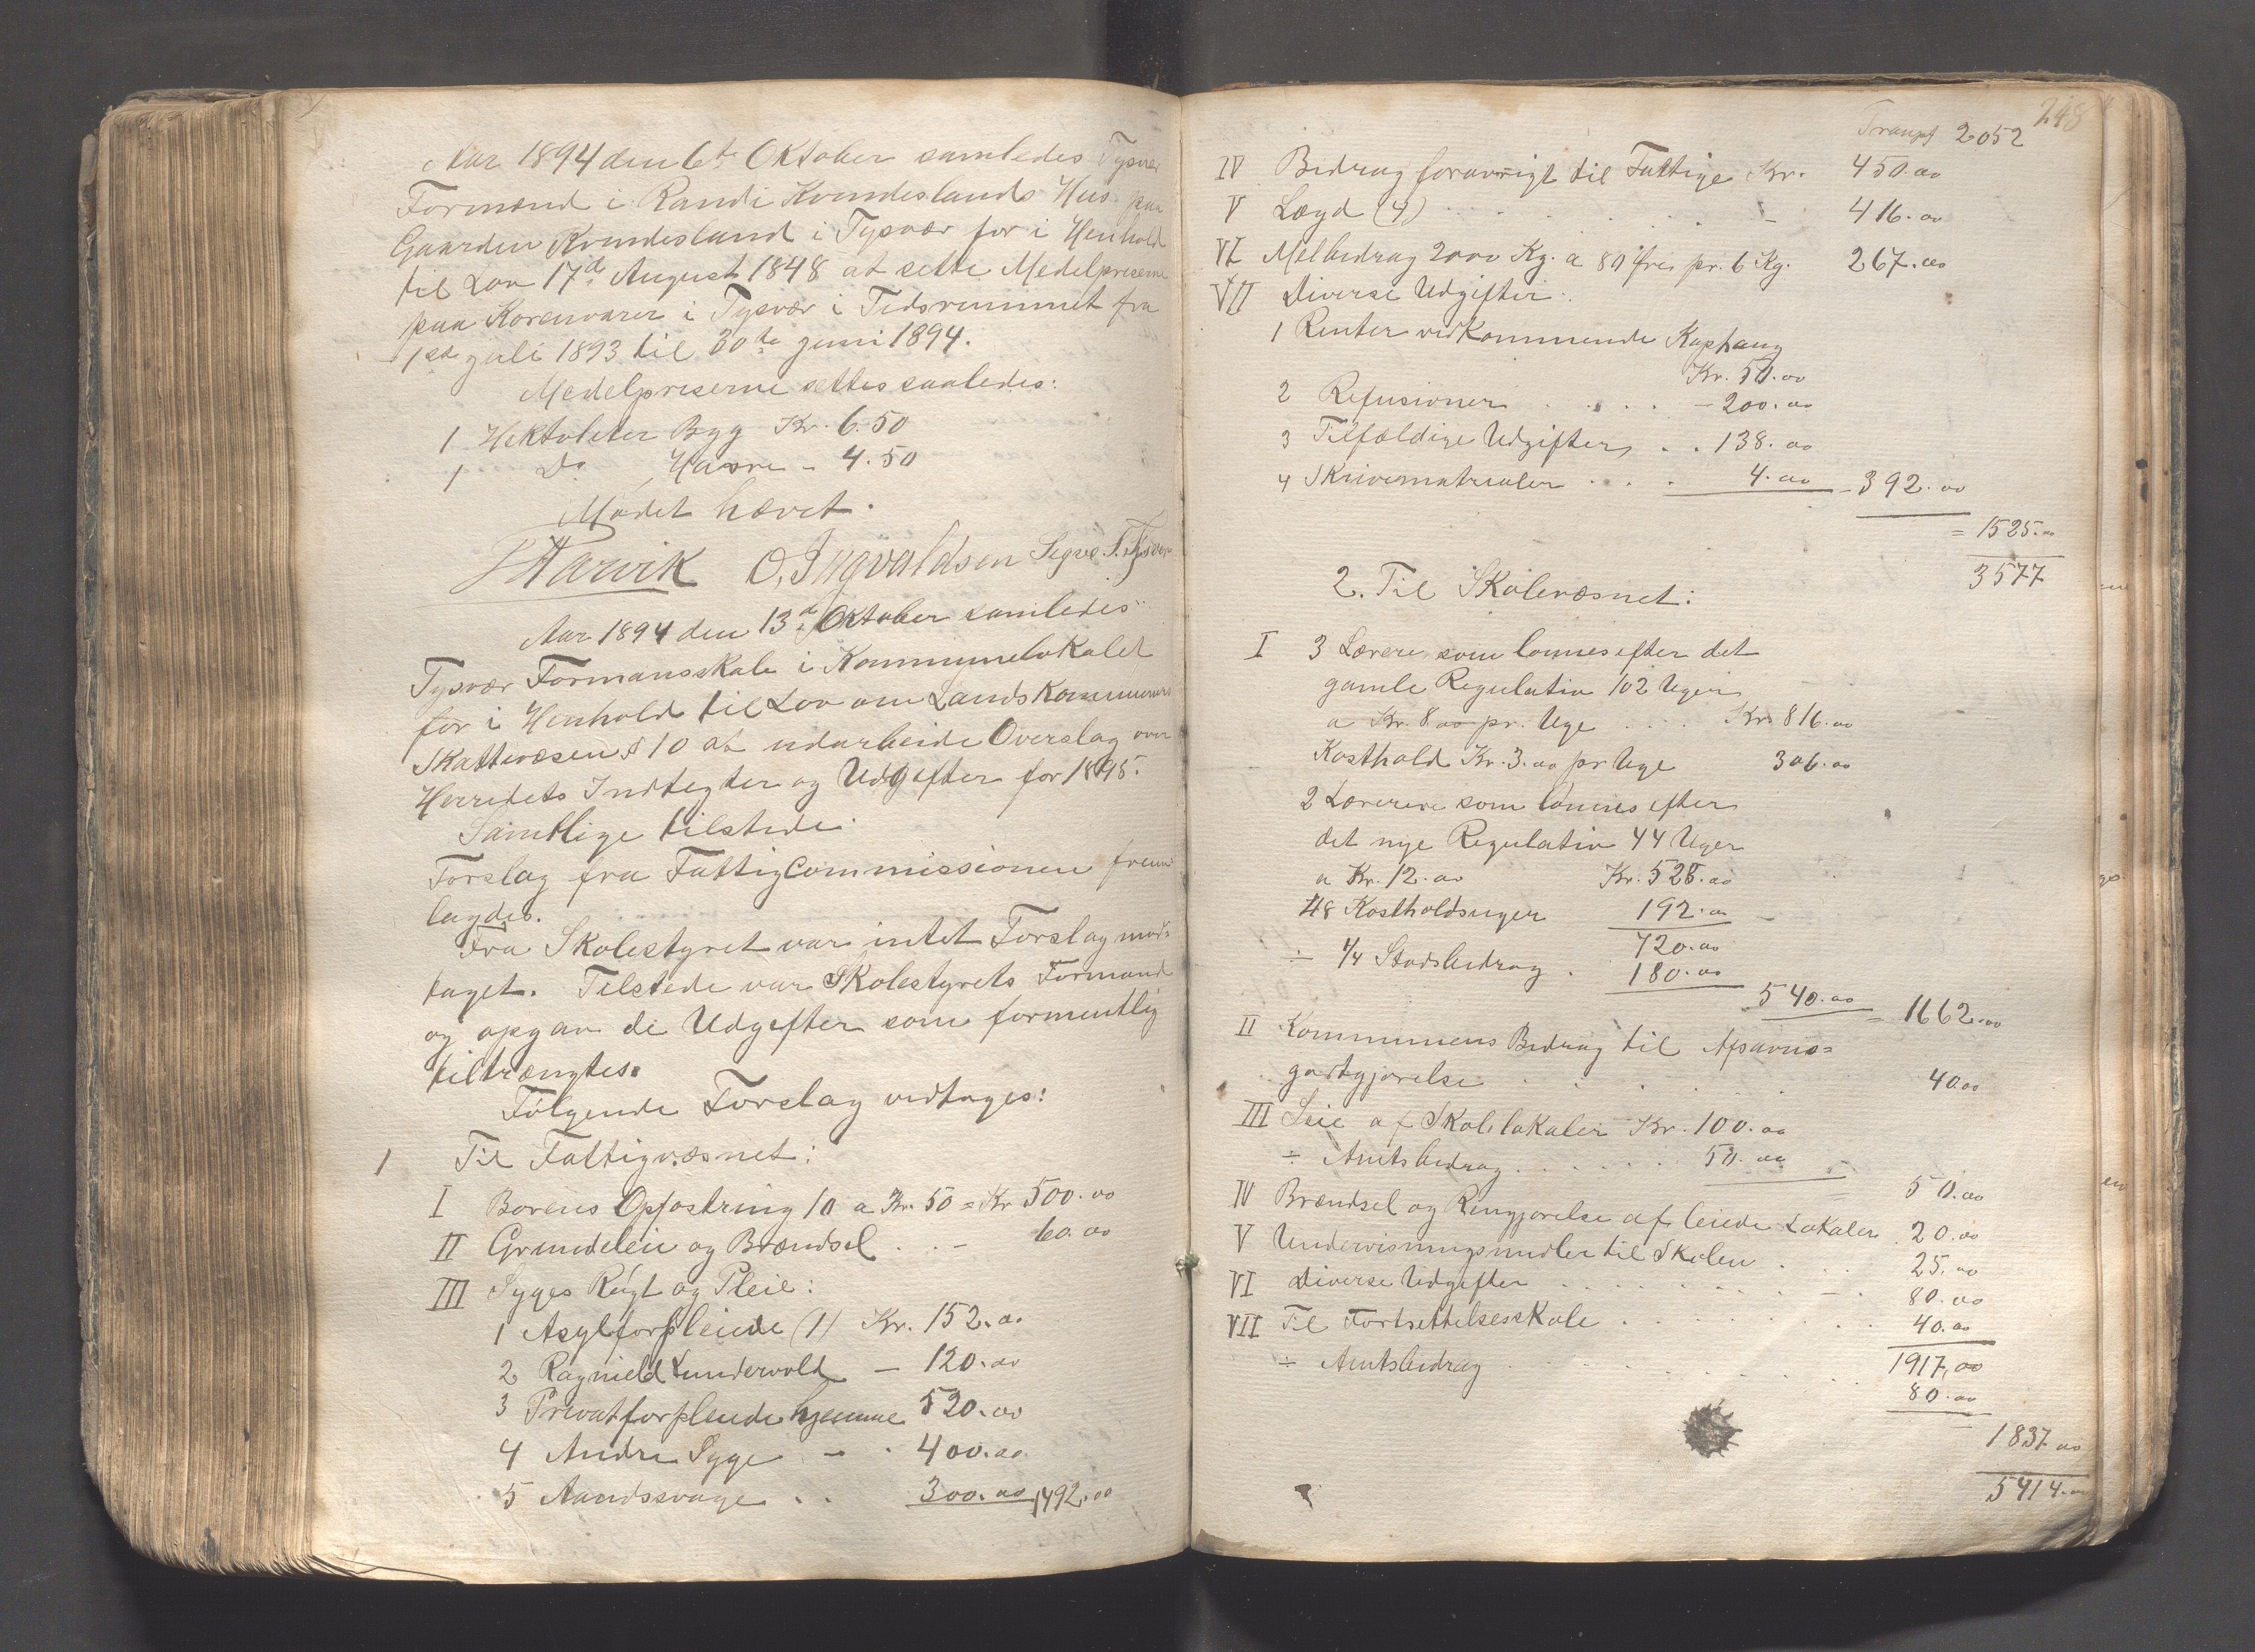 Aar 1894 den 6te Oktober samledes Tysvær
Formænd i Randi Kvindeslands Hus paa
Gaarden Kvindesland i Tysvær for i Henhold
til Lov 17de August 1848 at sette Medelpriserne
paa Korenvarer i Tysvær i Tidsrummet fra
1ste juli 1893 til 30te juni 1894.
Medelpriserne settes saaledes:
1 Hektoleter Byg Kr. 6.50
1 Do Havre - 4.50
Mødet hævet.
Harvik O. Ingvaldsen Sigve S. Tysvær
Aar 1894 den 13de Oktober samledes
Tysvær Formansskab i Kommunelokalet
for i Henhold til Lov om Landskommuners
Skattevæsen § 10 at udarbeide Overslag over
Herredets Indtegter og Udgifter for 1895.
Samtlige tilstede.
Forslag fra Fattigcommissionen frem
lagdes.
Fra Skolestyret var intet Forslag mod=
taget. Tilstede var Skolestyrets Formand
og opgav de Udgifter som formentlig
tiltrængtes.
Følgende Forslag vedtages:
1 Til Fattigvæsnet:
I Borens Opfostring 10 a Kr. 50 = Kr 500.00
II Grundeleie og Brændsel . . - 60.00
III Syges Røgt og Pleie:
1 Asylforpleiede (1) Kr. 152.00
2 Ragnield Lundervold - 120.00
3 Privatforpleiede hjemme 520.00
4 Andre Syge - . 400.00
5 Aandssvage . . 300.00 1492.00
248
Transpt 2052
IV Bidrag foravrigt til Fattige Kr. 450.00
V Lægd (4) - 416.00
VI Melbidrag 2000 Kg. a 80 Øre pr. 6 Kg. 267.00
VII Diverse Udgifter:
1 Renter vedkommende Kaphaug
Kr. 50.00
2 Refusioner . . . . - 200.00
3 Tilfældige Udgifter . . 138.00
4 Skrivematrialer . . . 4.00 - 392.00
= 1525.00
3577
2. Til Skolevæsnet:
I 3 Lærere som lønnes efter det
gamle Regulativ 102 Uger
a Kr. 8.00 pr. Uge . . . . Kr. 816.00
Kosthold Kr. 3.00 pr Uge 306.00
2 Lærere som lønnes efter
det nye Regulativ 44 Uger
a Kr. 12.00 Kr. 528.00
48 Kostholdsuger 192.00
720.00
÷ 1/4 Stadsbidrag . 180.00
540.00 = 1662.00
II Kommunens Bidrag til Afsavns=
godtgjørelse . . . . 40.00
III Leie af Skolelokaler Kr. 100.00
÷ Amtsbidrag . . . . . 50.00
50.00
IV Brændsel og Rengjørelse af leiede Lokaler . 20.00
V Undervisningsmidler til Skolen . . . 25.00
VI Diverse Udgifter . . . . . . . - . 80.00
VII Til Fortsettelsesskole . . . . . . . . 40.00
1917.00
÷ Amtsbidrag . . . . . . . . 80.00
1837.00
5414.00